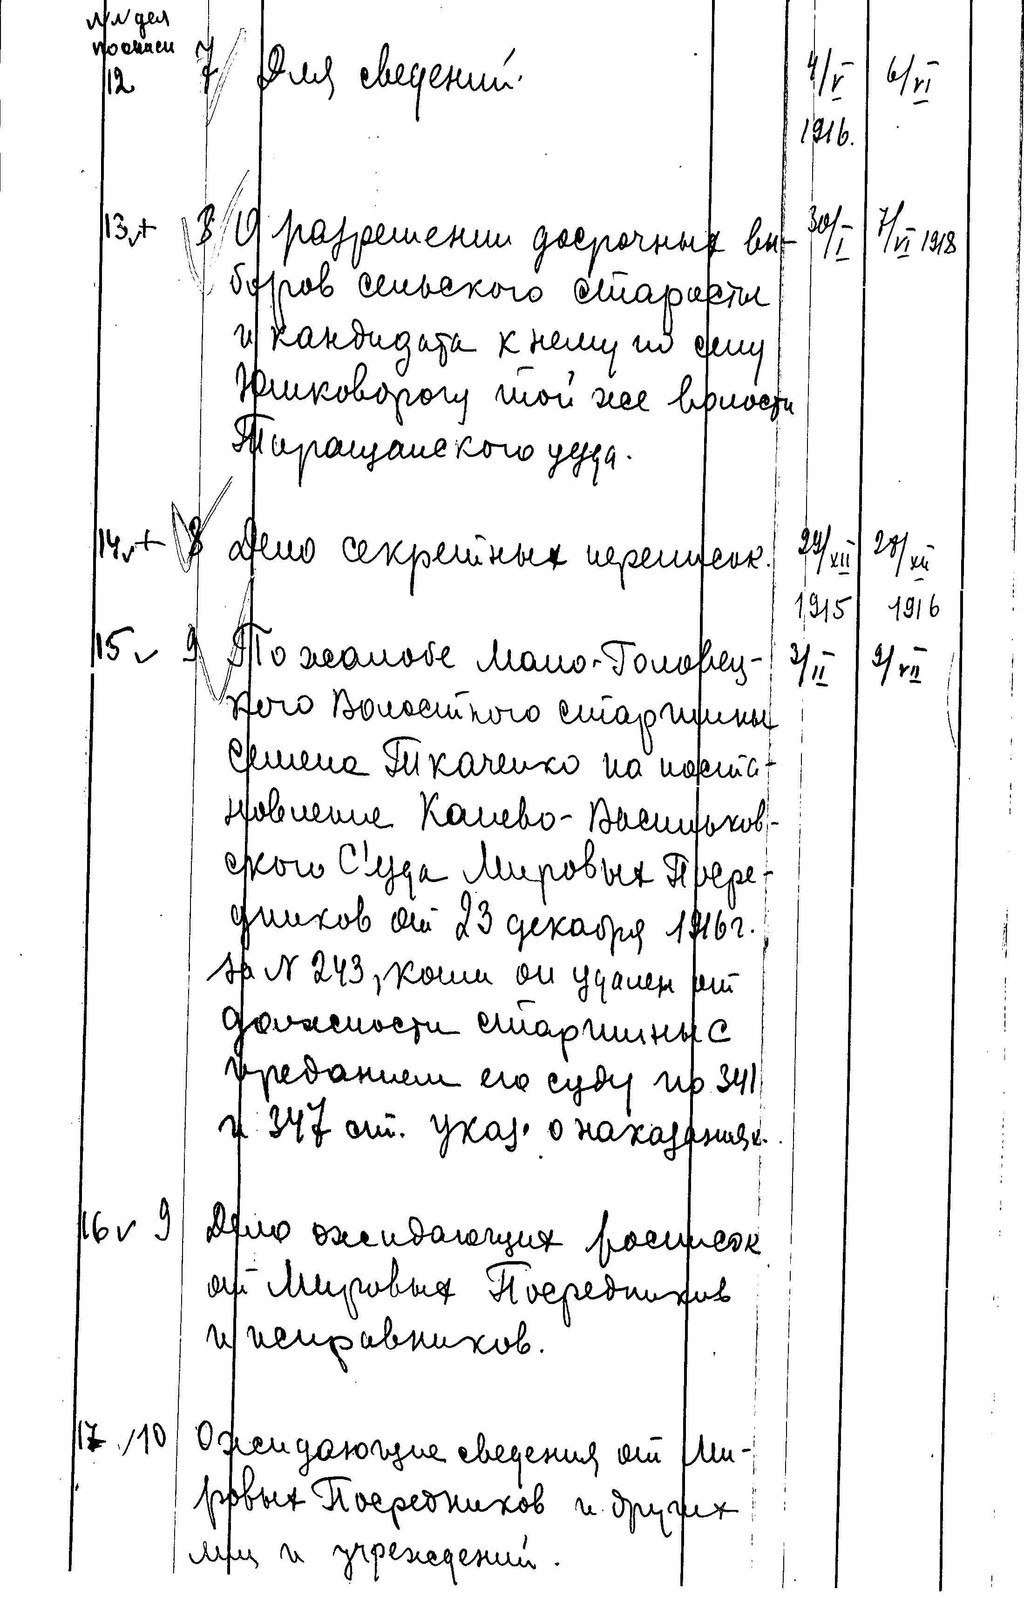 NN дел
по описи
12 7 Для сведений. 4/V 6/VI
1916.
13 v+ 8 О разрешении досрочных вы- 30/I 7/VI 1918
боров сельского старосты
и кандидата к нему по селу
Юшковорогу той же волости
Таращанского уезда.
14 v+ 8 Дело секретных переписок. 29/XII 28/XII
1915 1916
15 v 9 По жалобе Мало-Половец- 3/II 9/VII
кого Волостного старшины
Семена Ткаченко на поста-
новление Канево-Васильков-
ского Съуда Мировых Посре-
дников от 23 декабря 1916 г.
за N 243, коим он удален от
должности старшины с
преданием его суду по 341
и 347 ст. улож. о наказаниях.
16 v 9 Дело ожидающих росписок
от Мировых Посредников
и исправников.
17 v 10 Ожидающие сведения от Ми-
ровых Посредников и других
лиц и учреждений.